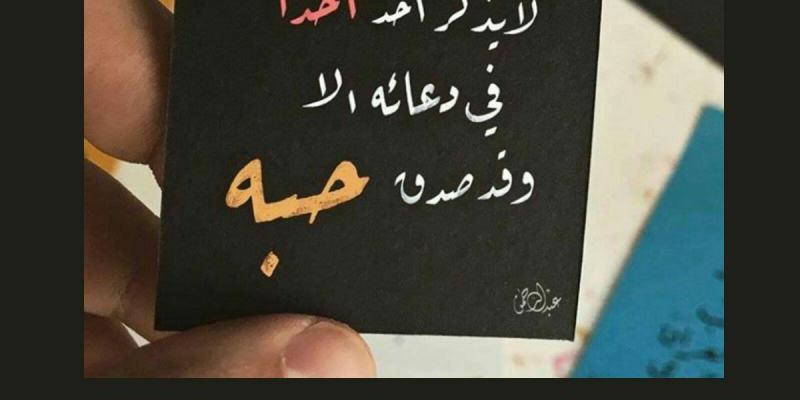 لا يذكر أحد أحدا
في دعائه الا
وقد صدق حبه
عبدالرحمن